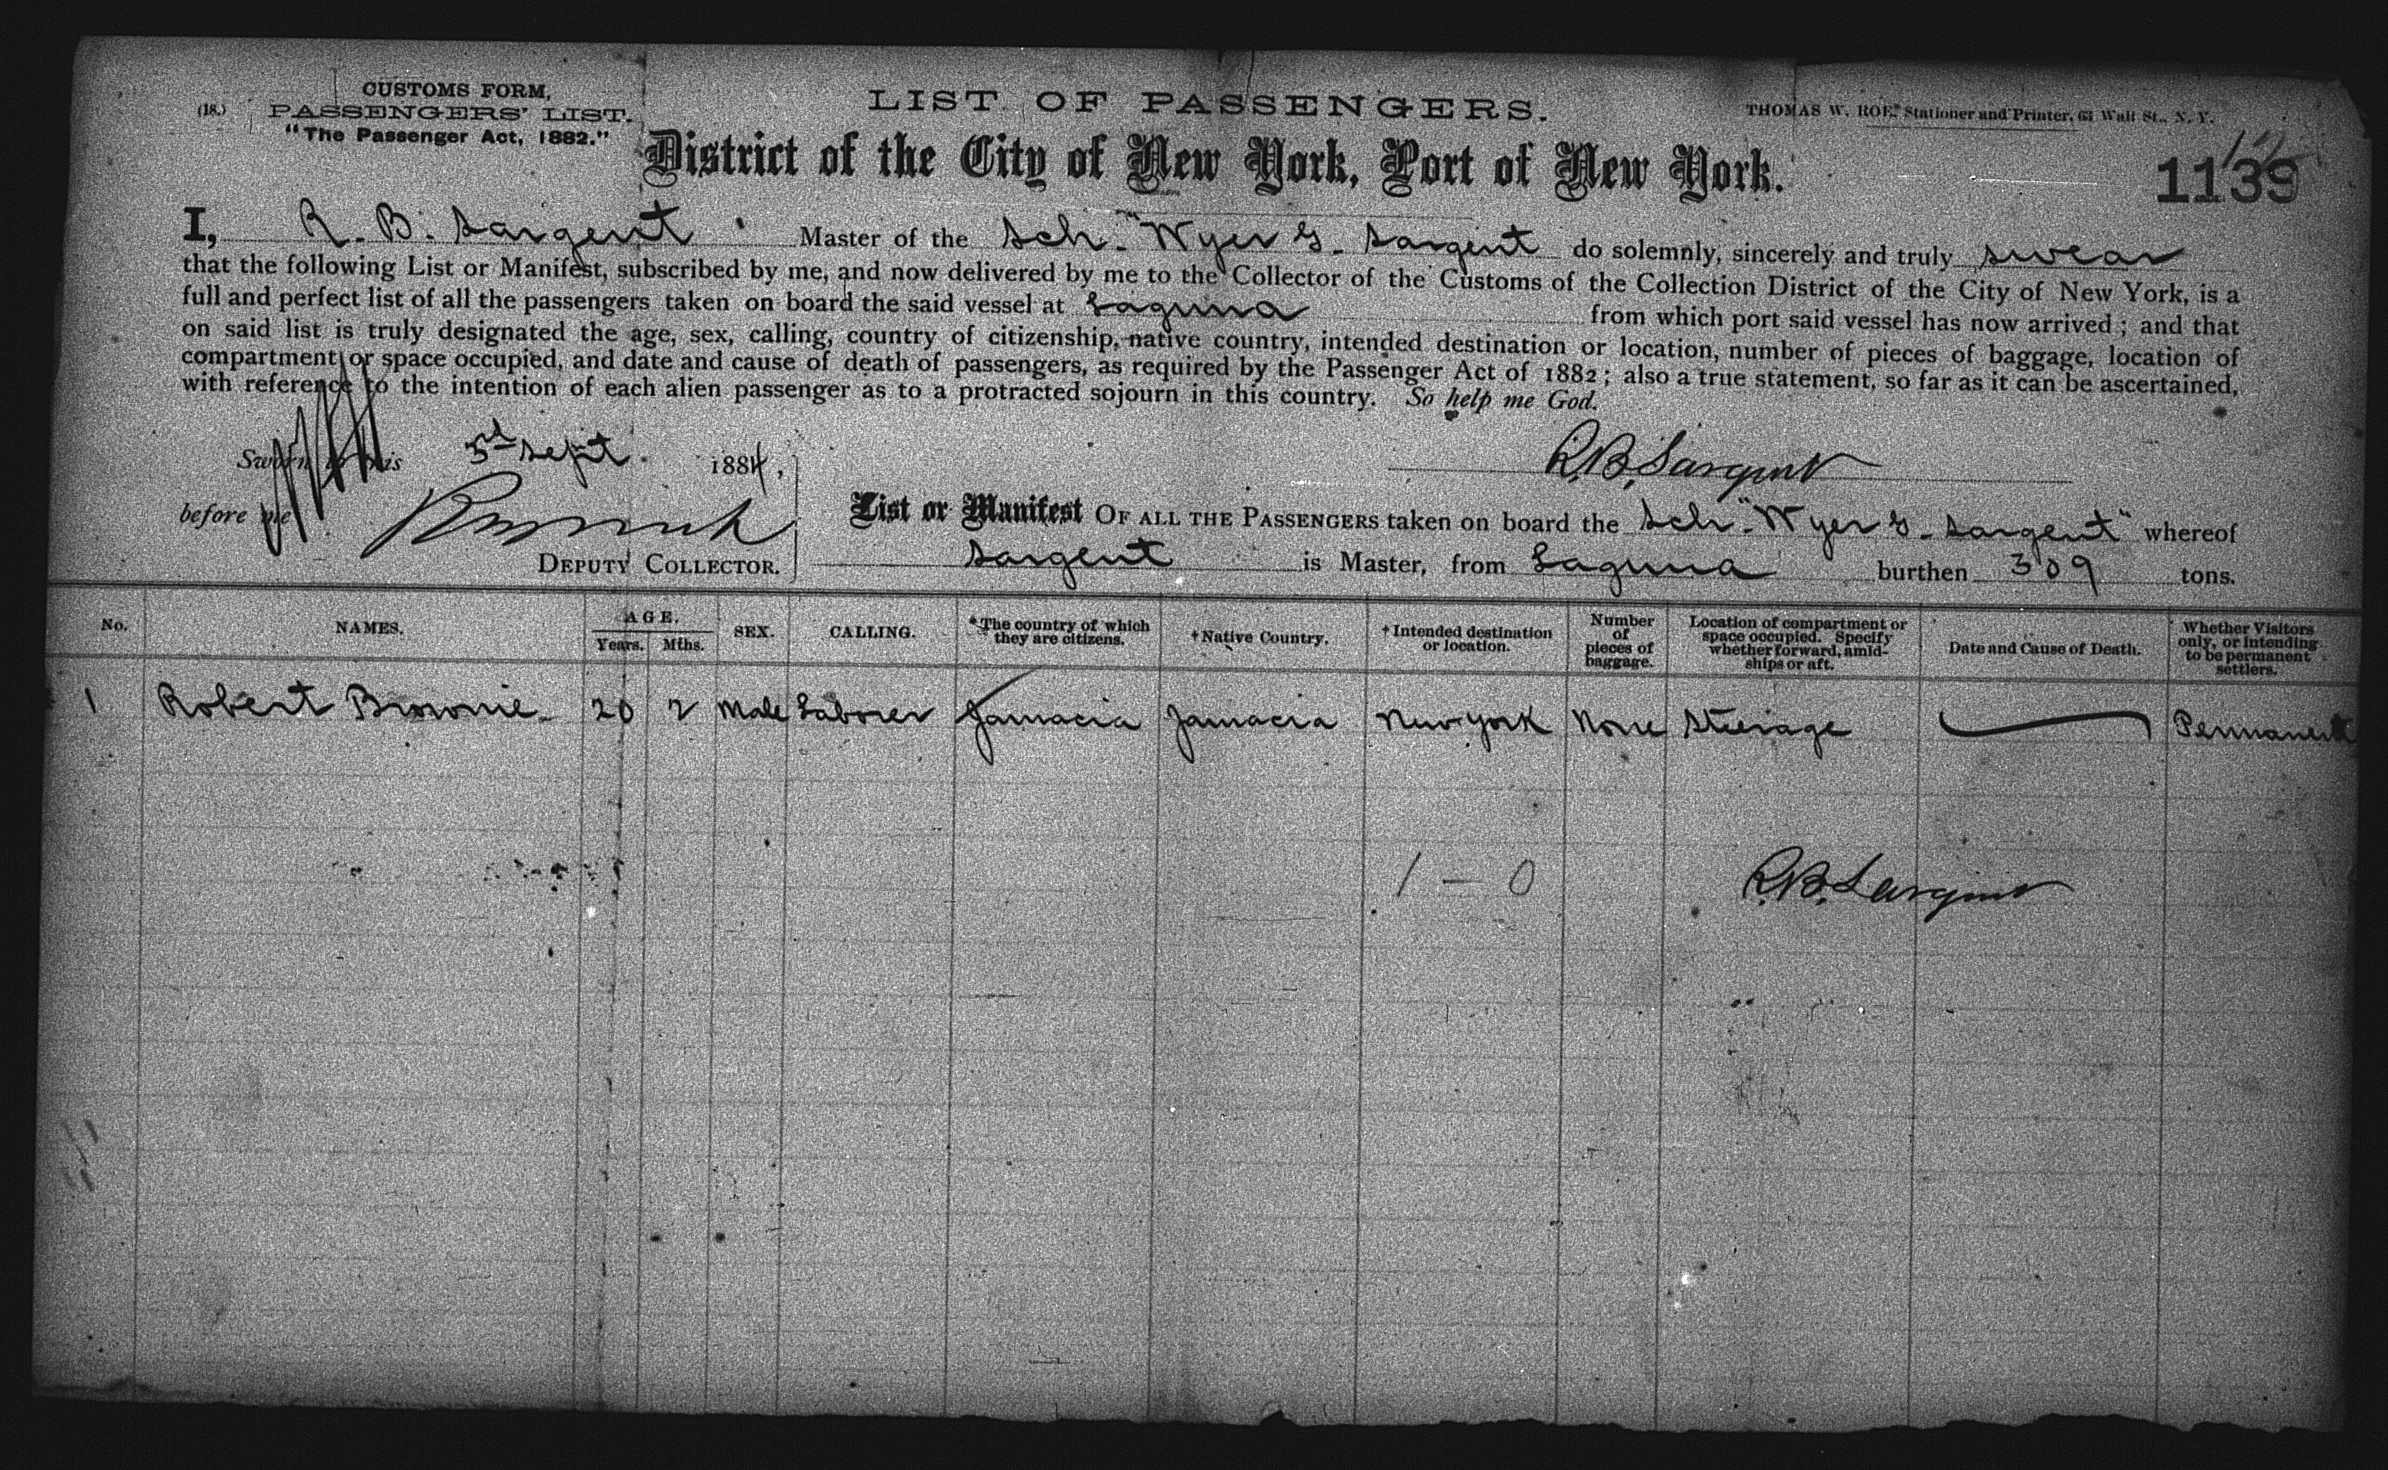 CUSTOMS FORM,
(18.) PASSENGERS' LIST.
"The Passenger Act, 1882."
LIST OF PASSENGERS.
THOMAS W. ROE, Stationer and Printer, 61 Wall St., N. Y.
District of the City of New York, Port of New York.
1139
I, R. B. Sargent Master of the Sch. "Wyer G. Sargent do solemnly, sincerely and truly swear
that the following List or Manifest, subscribed by me, and now delivered by me to the Collector of the Customs of the Collection District of the City of New York, is a
full and perfect list of all the passengers taken on board the said vessel at Laguna from which port said vessel has now arrived; and that
on said list is truly designated the age, sex, calling, country of citizenship, native country, intended destination or location, number of pieces of baggage, location of
compartment or space occupied, and date and cause of death of passengers, as required by the Passenger Act of 1882; also a true statement, so far as it can be ascertained,
with reference to the intention of each alien passenger as to a protracted sojourn in this country. So help me God.
Sworn to this 5th Sept. 1884,
R.B. Sargent
before me
DEPUTY COLLECTOR.
List or Manifest OF ALL THE PASSENGERS taken on board the Sch. "Wyer G. Sargent" whereof
Sargent is Master, from Laguna burthen 309 tons.
No. NAMES. AGE. Years. Mths. SEX. CALLING. *The country of which they are citizens. †Native Country. †Intended destination or location. Number of pieces of baggage. Location of compartment or space occupied. Specify whether forward, amidships or aft. Date and Cause of Death. Whether Visitors only, or intending to be permanent settlers.
1 Robert Brownie 20 2 Male Laborer Jamacia Jamacia New York None Steerage Permanent
1 — 0 R.B. Sargent